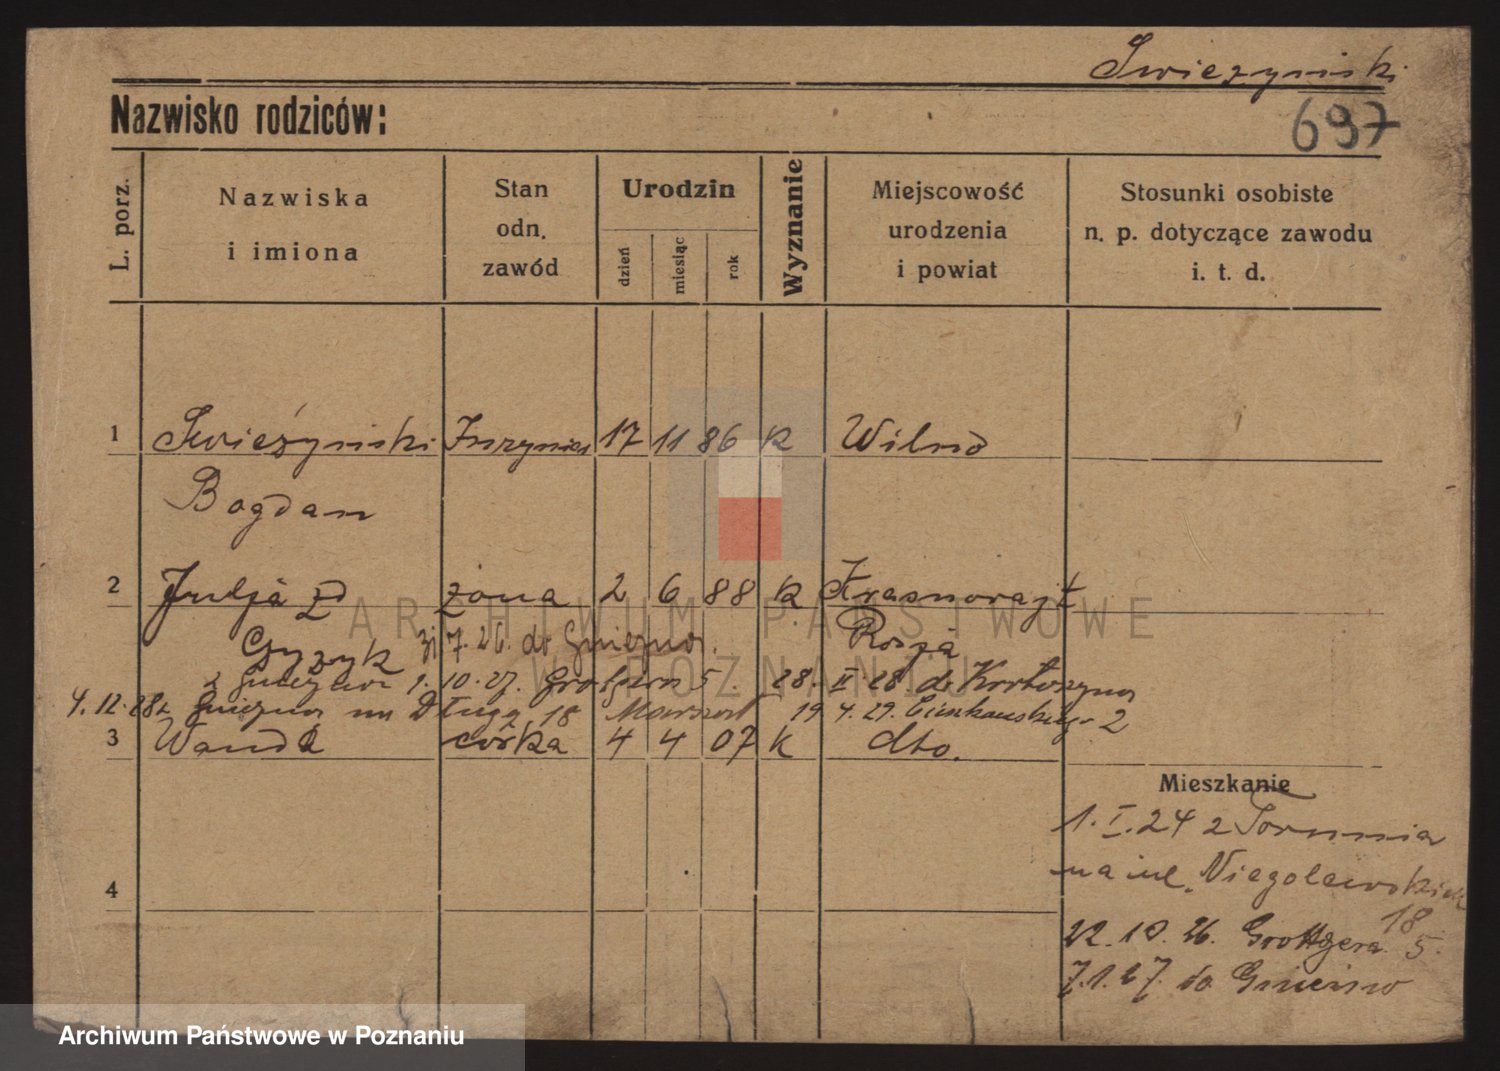 Swieżynski
Nazwisko rodziców:
697
L. porz.
Nazwiska
i imiona
Stan
odn.
zawód
Urodzin
dzień
miesiąc
rok
Wyznanie
Miejscowość
urodzenia
i powiat
Stosunki osobiste
n. p. dotyczące zawodu
i. t. d.
1 Swieżynski Inżynier 17 11 86 K Wilno
Bogdan
2 Julja zd żona 2 6 88 K
Gyzyk 31 7. 26. do Gniezna. Rosja
z Gniezna 1. 10. 27. Grottgera 5. 28. II. 28. do Krotoszyna
4. 12. 28 z Gniezna na Długą 18 19 4. 29. 2
3 Wanda córka 4 4 07 K dto.
Mieszkanie
1. I. 24 z Torunia
na ul. Niegolewskich
18
4
22. 10. 26. Grottgera 5.
7. 1. 27. do Gniezno
ARCHIWUM PAŃSTWOWE
W POZNANIU
Archiwum Państwowe w Poznaniu